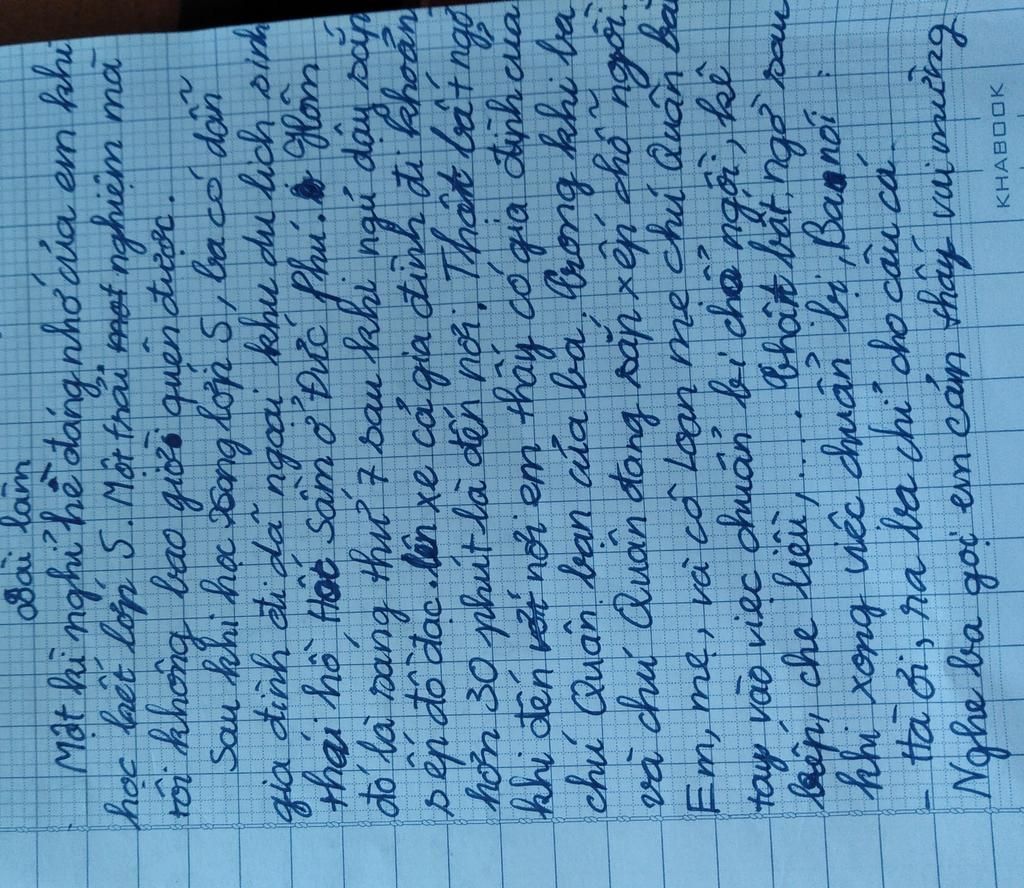 Bài làm
Một kì nghỉ hè đáng nhớ của em khi
học hết lớp 5. Một trải nghiệm mà
tôi không bao giờ quên được.
Sau khi học xong lớp 5, ba có dẫn
gia đình đi dã ngoại khu du lịch sinh
thái hồ Sấm ở Đức Phú. Hôm
đó là sang thứ 7 sau khi ngủ dậy sắp
sếp đồ đạc lên xe cả gia đình đi khoản
hơn 30 phút là đến nơi. Thật bất ngờ
khi đến nơi em thấy có gia đình của
chú Quân bạn của ba. Trong khi ba
và chú Quân đang sắp xếp chỗ ngồi.
Em, mẹ, và cô Loan mẹ chú Quân bắt
tay vào việc chuẩn bị chỗ ngồi, kê
bếp, che liều,.... Thật bất ngờ sau
khi xong việc chuẩn bị, Ba nói:
- Hà ơi, ra ba chỉ cho câu cá.
Nghe ba gọi em cảm thấy vui mừng
KHABOOK